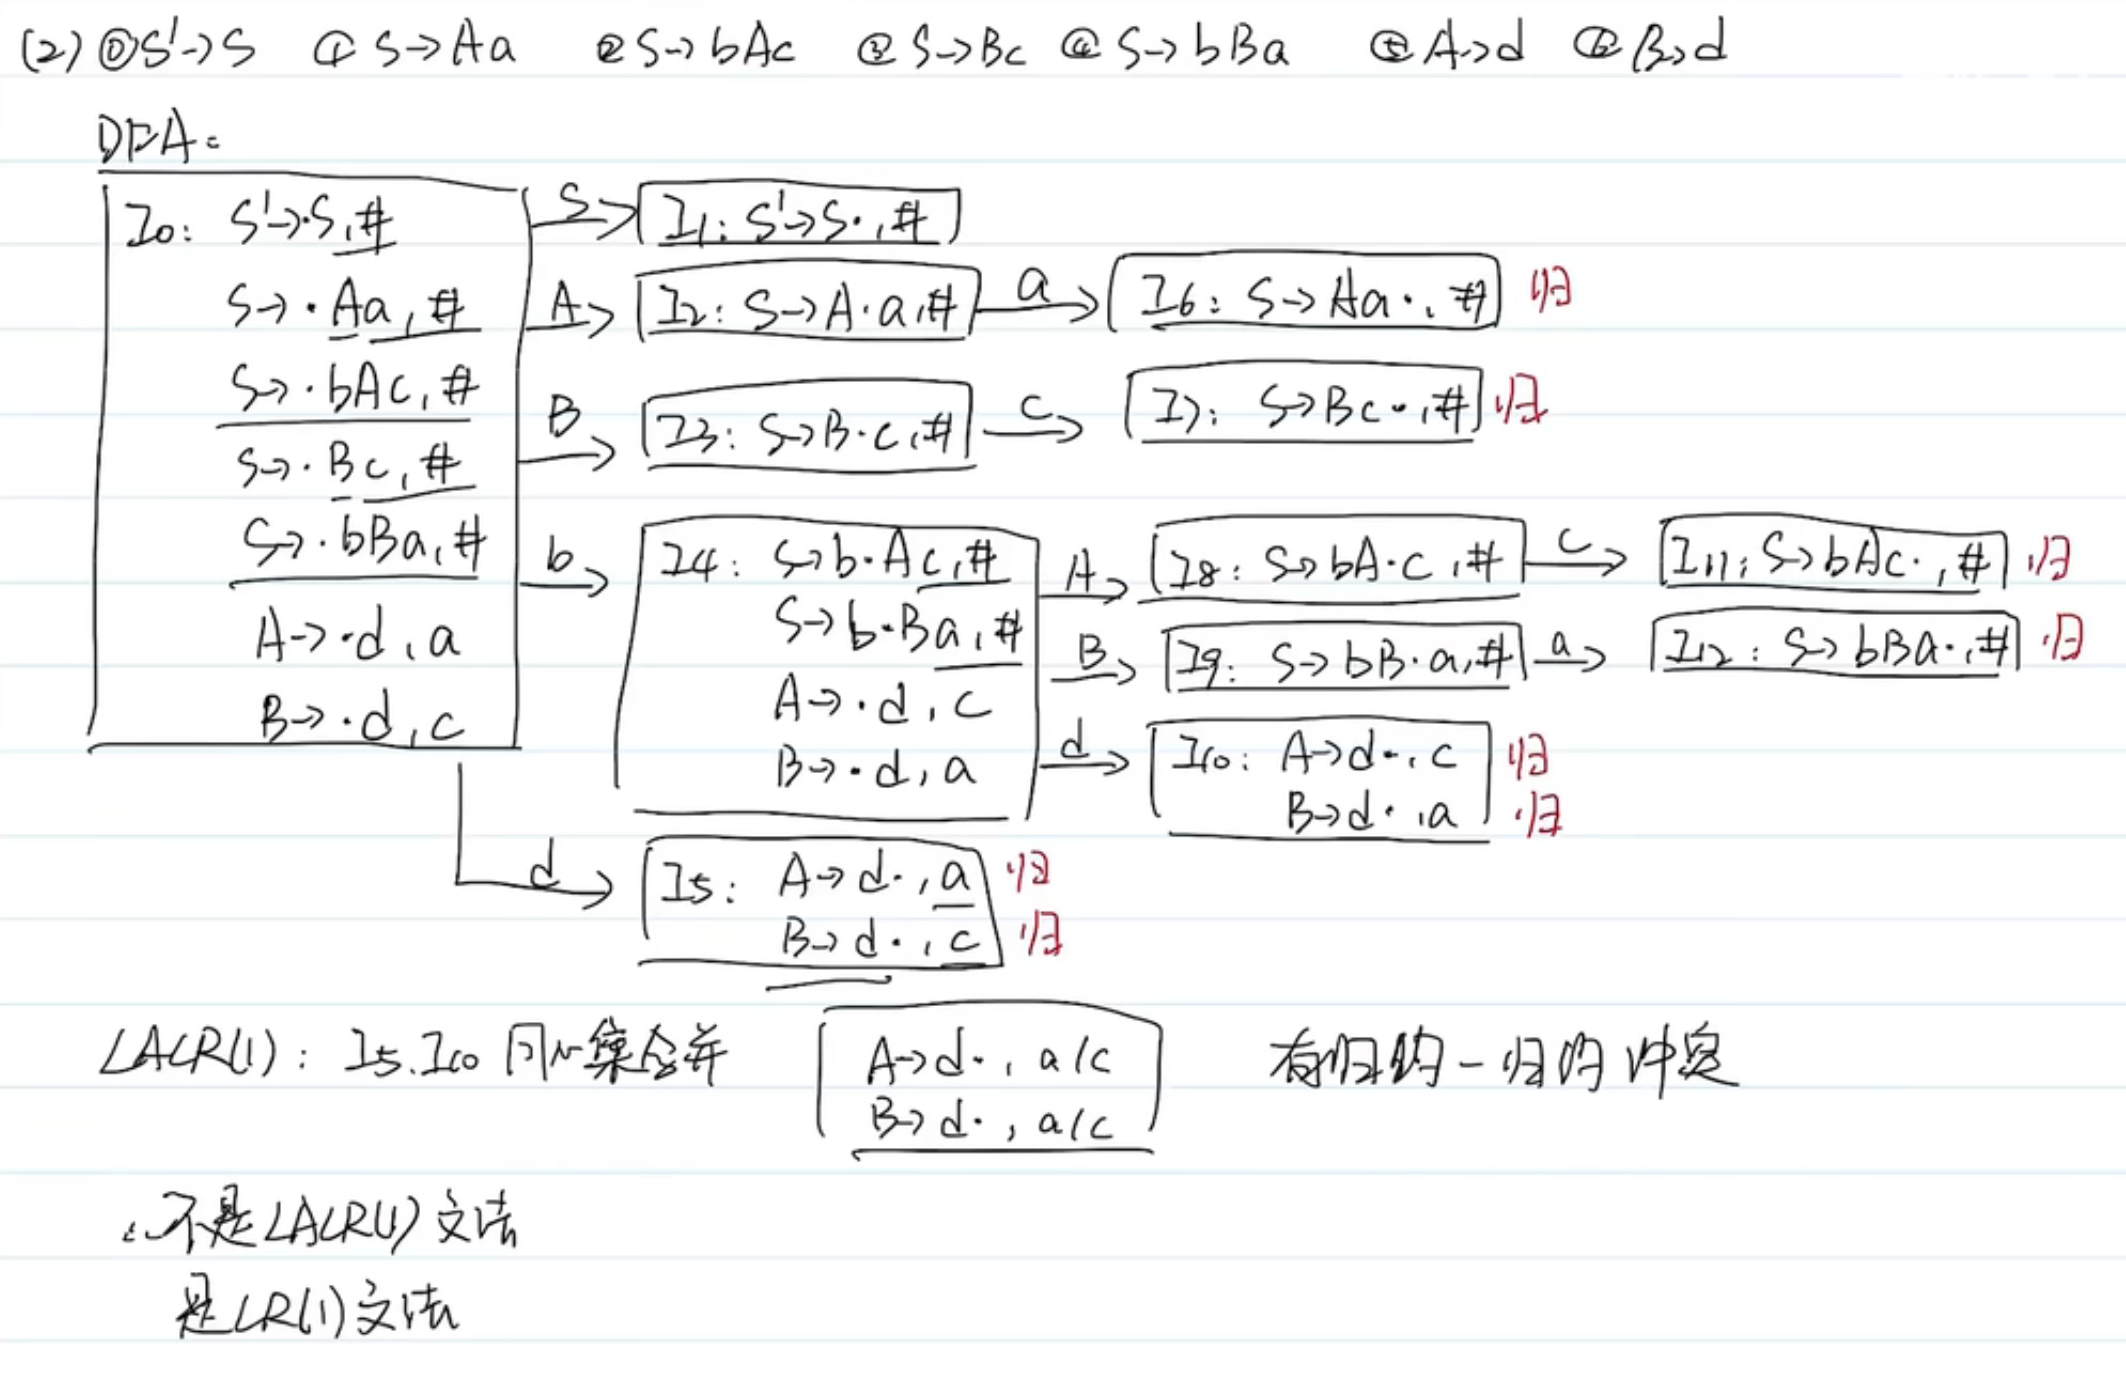 (2) ⓪S'→S ①S→Aa ②S→bAc ③S→Bc ④S→bBa ⑤A→d ⑥B→d
DFA:
I0: S'→·S,#
S→·Aa,#
S→·bAc,#
S→·Bc,#
S→·bBa,#
A→·d,a
B→·d,c
S
I1: S'→S·,#
A
I2: S→A·a,#
a
I6: S→Aa·,# 归
B
I3: S→B·c,#
c
I7: S→Bc·,# 归
b
I4: S→b·Ac,#
S→b·Ba,#
A→·d,c
B→·d,a
A
I8: S→bA·c,#
c
I11: S→bAc·,# 归
B
I9: S→bB·a,#
a
I12: S→bBa·,# 归
d
I10: A→d·,c 归
B→d·,a 归
d
I5: A→d·,a 归
B→d·,c 归
LALR(1): I5.I10 同心集合并
A→d·, a/c
B→d·, a/c
有归约-归约冲突
∴不是LALR(1)文法
是LR(1)文法